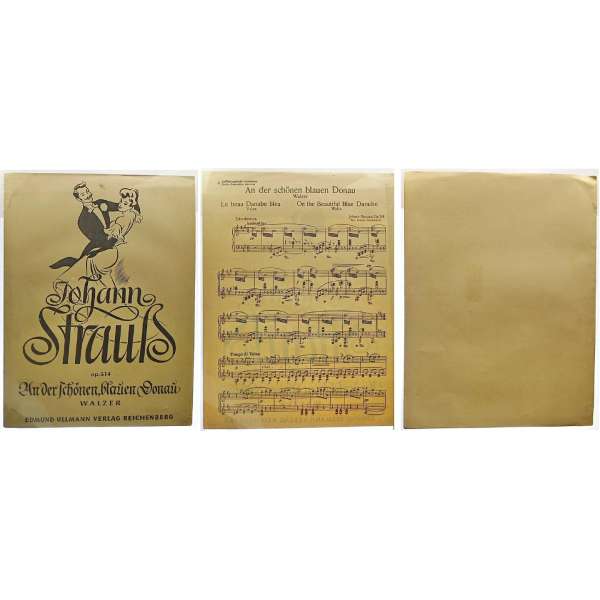 Johann
Strauß
op.314
An der schönen, blauen Donau
WALZER
EDMUND ULLMANN VERLAG REICHENBERG
An der schönen blauen Donau
Walzer
Le beau Danube bleu
On the Beautiful Blue Danube
Valse
Walz
Johann Strauss, Op. 314
Introduction
Tempo di Valse